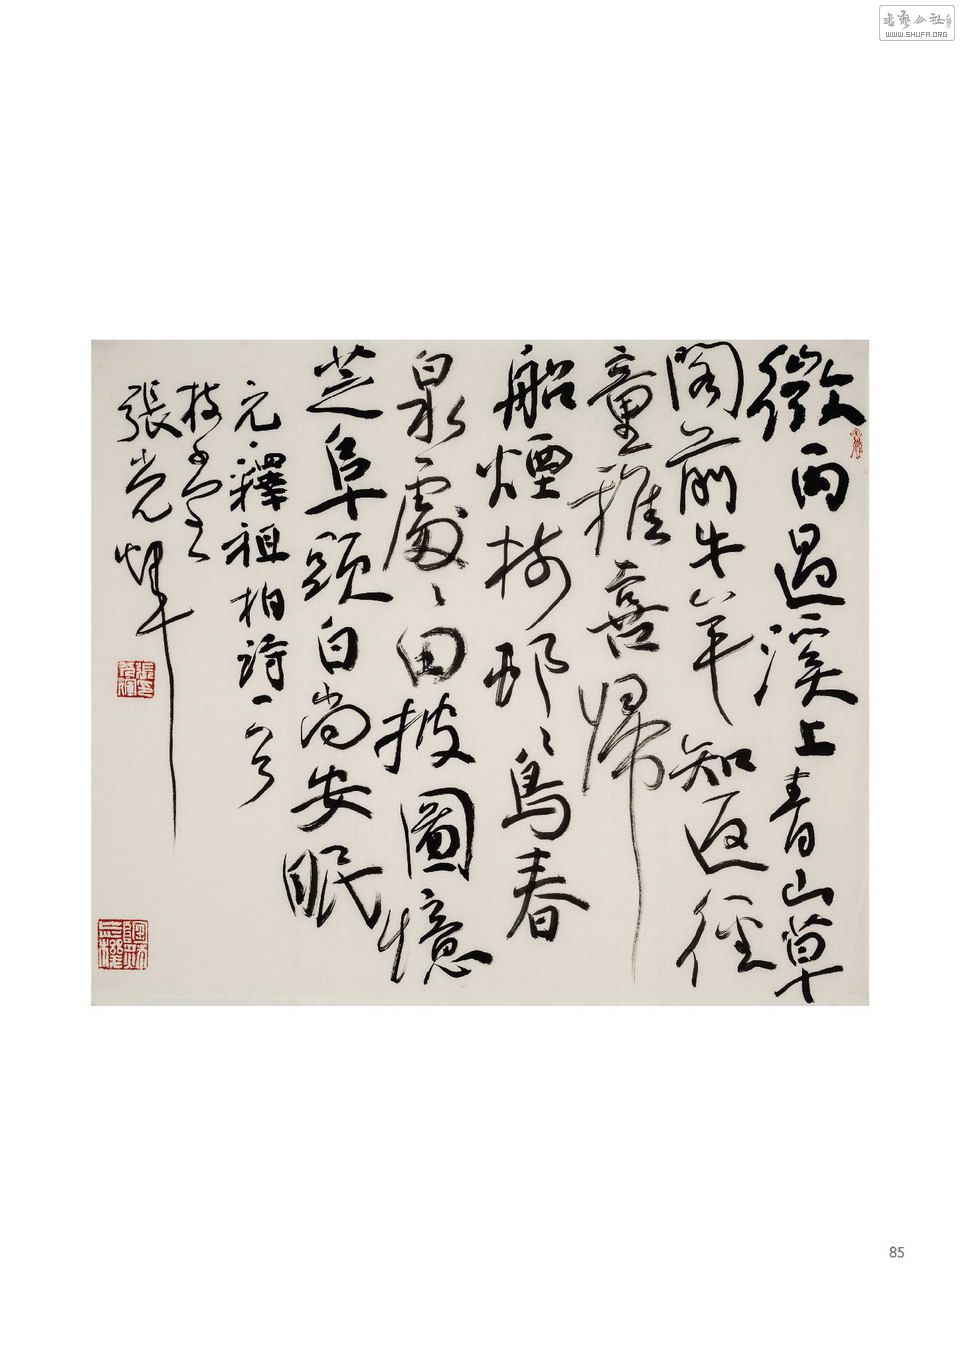 微雨過溪上青山草
閣前牛羊知返徑
童稚喜歸
船煙樹邨〻鳥春
泉處〻田披圖憶
芝阜頭白尚安眠
元釋祖柏詩一首
張光
WWW.SHUFA.ORG
85